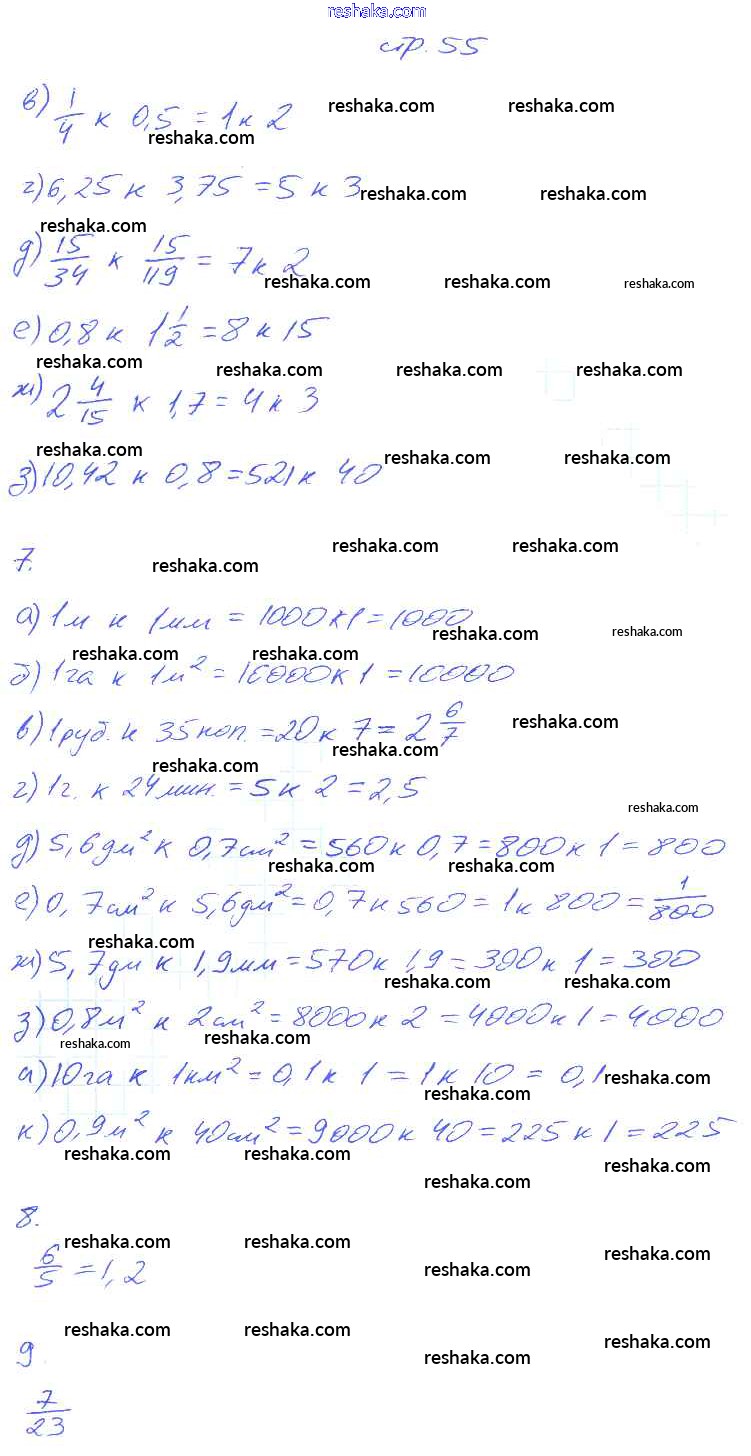 reshaka.com
стр. 55
в) 1/4 к 0,5 = 1 к 2
reshaka.com reshaka.com
reshaka.com
г) 6,25 к 3,75 = 5 к 3
reshaka.com reshaka.com
reshaka.com
д) 15/34 к 15/119 = 7 к 2
reshaka.com reshaka.com reshaka.com
е) 0,8 к 1 1/2 = 8 к 15
reshaka.com reshaka.com reshaka.com reshaka.com
ж) 2 4/15 к 1,7 = 4 к 3
reshaka.com reshaka.com reshaka.com
з) 10,42 к 0,8 = 521 к 40
7.
reshaka.com reshaka.com reshaka.com
а) 1м к 1мм = 1000 к 1 = 1000
reshaka.com reshaka.com
reshaka.com reshaka.com
б) 1га к 1м² = 10000 к 1 = 10000
в) 1руб. к 35коп. = 20 к 7 = 2 6/7
reshaka.com
reshaka.com reshaka.com
г) 1г. к 24мин. = 5 к 2 = 2,5
reshaka.com
д) 5,6дм² к 0,7см² = 560 к 0,7 = 800 к 1 = 800
reshaka.com reshaka.com
е) 0,7см² к 5,6дм² = 0,7 к 560 = 1 к 800 = 1/800
reshaka.com
ж) 5,7дм к 1,9мм = 570 к 1,9 = 300 к 1 = 300
reshaka.com reshaka.com
з) 0,8м² к 2см² = 8000 к 2 = 4000 к 1 = 4000
reshaka.com reshaka.com
и) 10га к 1км² = 0,1 к 1 = 1 к 10 = 0,1
reshaka.com reshaka.com
к) 0,9м² к 40см² = 9000 к 40 = 225 к 1 = 225
reshaka.com reshaka.com reshaka.com reshaka.com
8.
reshaka.com reshaka.com reshaka.com reshaka.com
6/5 = 1,2
reshaka.com reshaka.com reshaka.com reshaka.com
9.
7/23